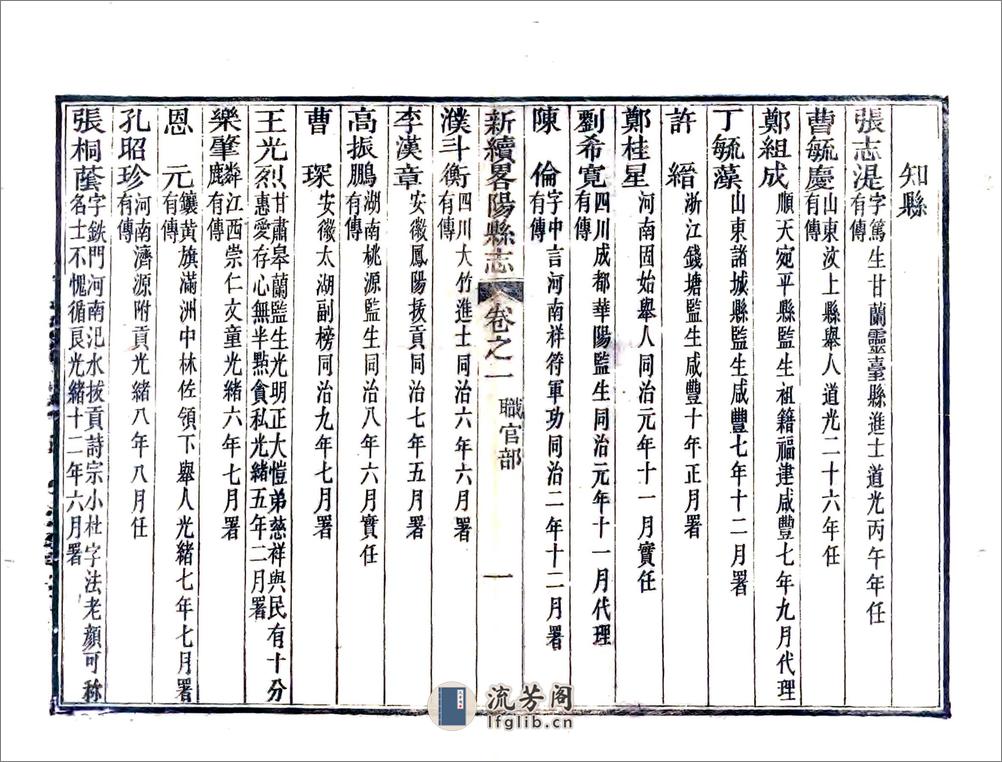 知縣
張志湜字篤生甘蘭靈臺縣進士道光丙午年任
有傳
曹毓慶山東汶上縣舉人道光二十六年任
有傳
鄭組成順天宛平縣監生祖籍福建咸豐七年九月代理
丁毓藻山東諸城縣監生咸豐七年十二月署
許縉浙江錢塘監生咸豐十年正月署
鄭桂星河南固始舉人同治元年十一月實任
劉希寬四川成都華陽監生同治元年十一月代理
有傳
陳倫字中言河南祥符軍功同治二年十二月署
有傳
新續畧陽縣志 卷之一 職官部 一
濮斗衡四川大竹進士同治六年六月署
有傳
李漢章安徽鳳陽拔貢同治七年五月署
高振鵬湖南桃源監生同治八年六月實任
有傳
曹琛安徽太湖副榜同治九年七月署
王光烈甘肅皋蘭監生光明正大愷弟慈祥與民有十分
惠愛存心無半點貪私光緒五年二月署
樂肇麟江西崇仁文童光緒六年七月署
有傳
恩元鑲黃旗滿洲中林佐領下舉人光緒七年七月署
有傳
孔昭珍河南濟源附貢光緒八年八月任
有傳
張桐蔭字鉄門河南汜水拔貢詩宗小杜字法老顏可称
名士不愧循良光緒十二年六月署
流芳阁
lfglib.cn